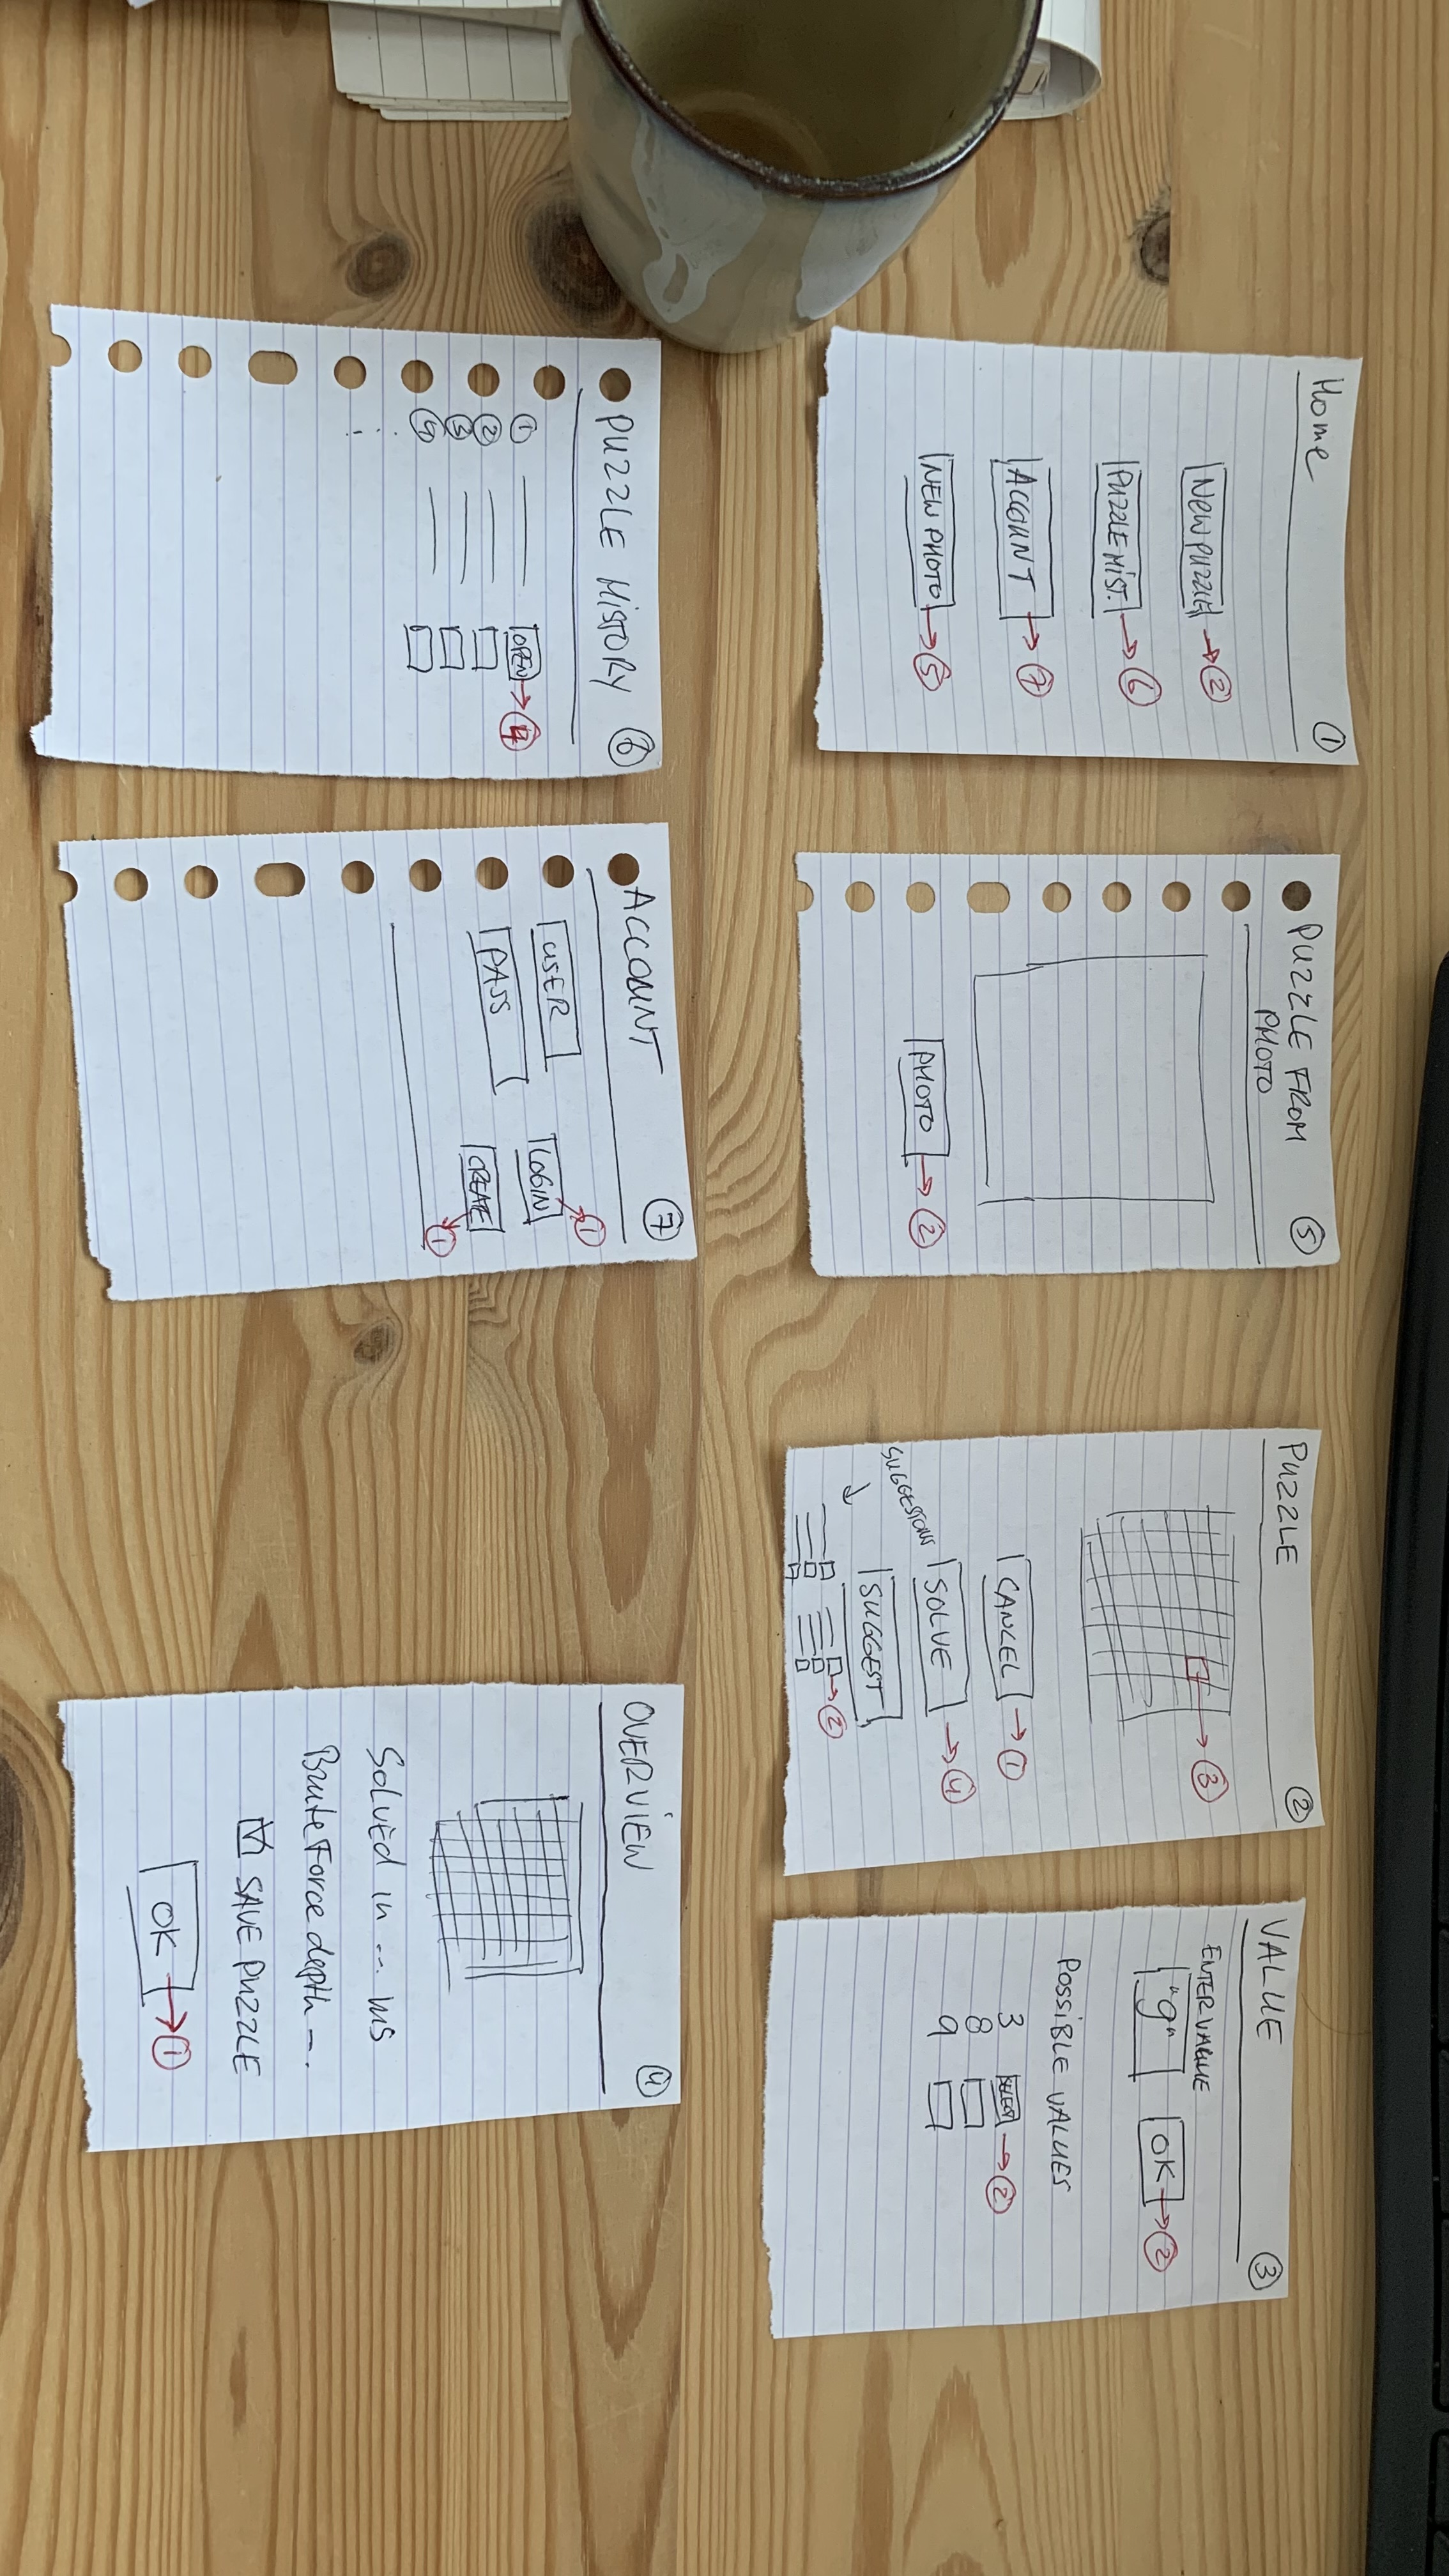 Home 1
NEW PUZZLE → 2
PUZZLE HIST. → 6
ACCOUNT → 7
NEW PHOTO → 5
PUZZLE FROM 5
PHOTO
PHOTO → 2
PUZZLE 2
→ 3
CANCEL → 1
SOLVE → 4
SUGGESTIONS
SUGGEST
→ 2
VALUE 3
ENTER VALUE
"9" OK → 2
POSSIBLE VALUES
3 SELECT → 2
8
9
PUZZLE HISTORY 6
1 OPEN → 4
2
3
4
ACCOUNT 7
1
USER LOGIN
PASS CREATE
1
OVERVIEW 4
SOLVED in ... ms
Brute Force depth -.
SAVE PUZZLE
OK → 1